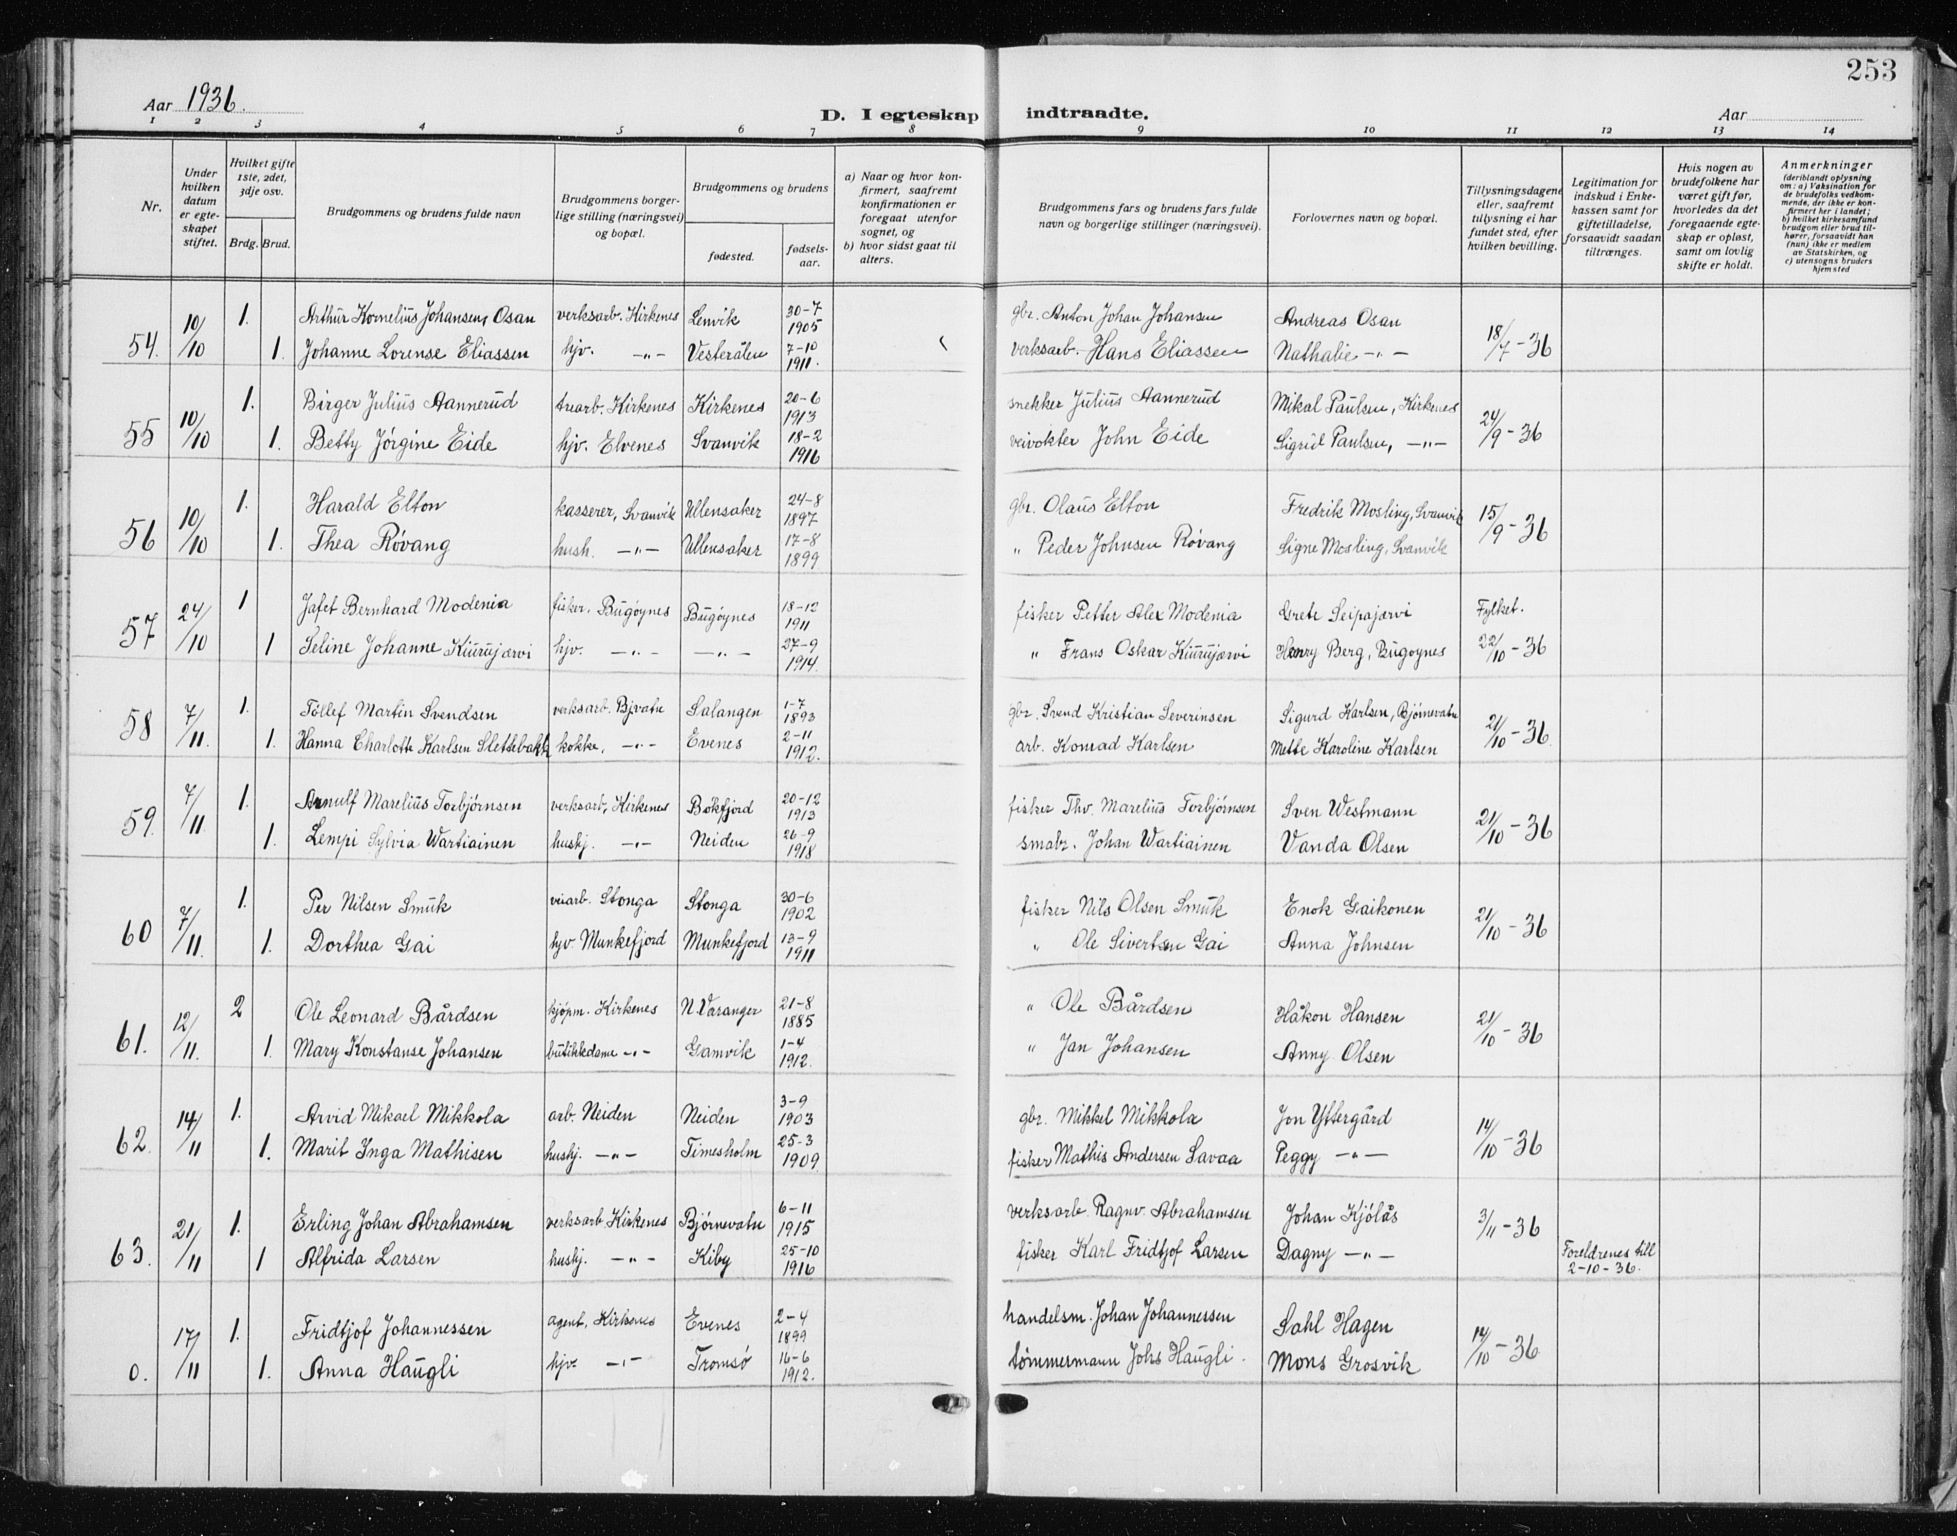 253
Aar 1936.
D. I egteskap indtraadte.
Aar
1 2 3 4 5 6 7 8 9 10 11 12 13 14
Nr.
Under hvilken datum er egteskapet stiftet.
Hvilket gifte 1ste, 2det, 3dje osv.
Brdg. Brud.
Brudgommens og brudens fulde navn
Brudgommens borgerlige stilling (næringsvei) og bopæl.
Brudgommens og brudens
fødested.
fødselsaar.
a) Naar og hvor konfirmert, saafremt konfirmationen er foregaat utenfor sognet, og
b) hvor sidst gaat til alters.
Brudgommens fars og brudens fars fulde navn og borgerlige stillinger (næringsvei).
Forlovernes navn og bopæl.
Tillysningsdagene eller, saafremt tillysning ei har fundet sted, efter hvilken bevilling.
Legitimation for indskud i Enkekassen samt for giftetilladelse, forsaavidt saadan tiltrænges.
Hvis nogen av brudefolkene har været gift før, hvorledes da det foregaaende egteskap er opløst, samt om lovlig skifte er holdt.
Anmerkninger (deriblandt oplysning om: a) Vaksination for de brudefolks vedkommende, der ikke er konfirmert her i landet; b) hvilket kirkesamfund brudgom eller brud tilhører, forsaavidt han (hun) ikke er medlem av Statskirken, og c) utensogns bruders hjemsted
54. 10/10 1. Arthur Kornelius Johansen, Osan verksarb. Kirkenes Lenvik 30-7 1905 gbr. Anton Johan Johansen Andreas Osan 18/7-36
1. Johanne Lorense Eliassen hjv. -"- Vesterålen 7-10 1911. verksarb. Hans Eliassen Nathalie -"-
55 10/10 1. Birger Julius Aannerud Kirkenes Kirkenes 20-6 1913 snekker Julius Aannerud Mikal Paulsen, Kirkenes 24/9-36
1. Betty Jórgine Eide hjv. Elvenes Svanvik 18-2 1916 veivokter John Eide Sigrid Paulsen, -"-
56 10/10 1. Harald Elton kasserer, Svanvik Ullensaker 24-8 1897 gbr. Olaus Elton Fredrik Mosling, Svanvik 15/9-36
1. Thea Róvang hush. -"- Ullensaker 17-8 1899 " Peder Johnsen Róvang Signe Mosling, Svanvik
57 24/10 1 Jafet Bernhard Modenia fisker. Bugóynes Bugóynes 18-12 1911 fisker Petter Alex Modenia Grete Seipajærvi Fylket.
1 Seline Johanne Kiurujærvi hjv. -"- -"- 27-9 1914. " Frans Oskar Kiurujærvi Henry Berg, Bugoynes 22/10-36
58 7/11. 1. Tollef Martin Svendsen verksarb. Bjvatn Salangen 1-7 1893 gbr. Svend Kristian Severinsen Sigurd Karlsen, Bjórnevatn 21/10-36
1. Hanna Charlotte Karlsen Slettebakk kokke, -"- Evenes 2-11 1912. arb. Konrad Karlsen Mette Karoline Karlsen
59. 7/11 1. Arnulf Marelius Torbjórnsen verksarb, Kirkenes Bókfjord 20-12 1913 fisker Thv. Marelius Torbjórnsen Sven Westmann 21/10-36
1. Lempi Sylvia Wartiainen hushj. -"- Neiden 26-9 1918 smabr. Johan Wartiainen Vanda Olsen
60 7/11. 1. Per Nilsen Smuk veiarb. Stonga Stonga 30-6 1902 fisker Nils Olsen Smuk Enok Gaikonen 21/10-36
1. Dorthea Gai hjv. Munkefjord Munkefjord 13-9 1911 " Ole Sivertsen Gai Anna Johnsen
61. 12/11. 2 Ole Leonard Bårdsen kjópm. Kirkenes N. Varanger 21-8 1885 " Ole Bårdsen Håkon Hansen 21/10-36
1. Mary Konstanse Johansen butikkdame -"- Gamvik 1-4 1912. " Jan Johansen Anny Olsen
62. 14/11 1. Arvid Mikael Mikkola arb. Neiden Neiden 3-9 1903 gbr. Mikkel Mikkola Jon Yttergård 14/10-36
1. Marit Inga Mathisen hushj. -"- Timesholm 25-3 1909. fisker Mathis Andersen Savaa Peggy -"-
63. 21/11 1. Erling Johan Abrahamsen verksarb. Kirkenes Bjórnevatn 6-11 1915 verksarb. Ragnv. Abrahamsen Johan Kjólås 3/11-36
1 Alfrida Larsen hushj. -"- Kiby 25-10 1916 fisker Karl Fridtjof Larsen Dagny -"- Foreldrenes till 2-10-36.
0. 17/11 1. Fridtjof Johannessen agent, Kirkenes Evenes 2-4 1899 handelsm. Johan Johannessen Sahl Hagen 14/10-36
1. Anna Haugli hjv. -"- Tromsó 16-6 1912. tómmermann Johs Haugli. Mons Grosvik